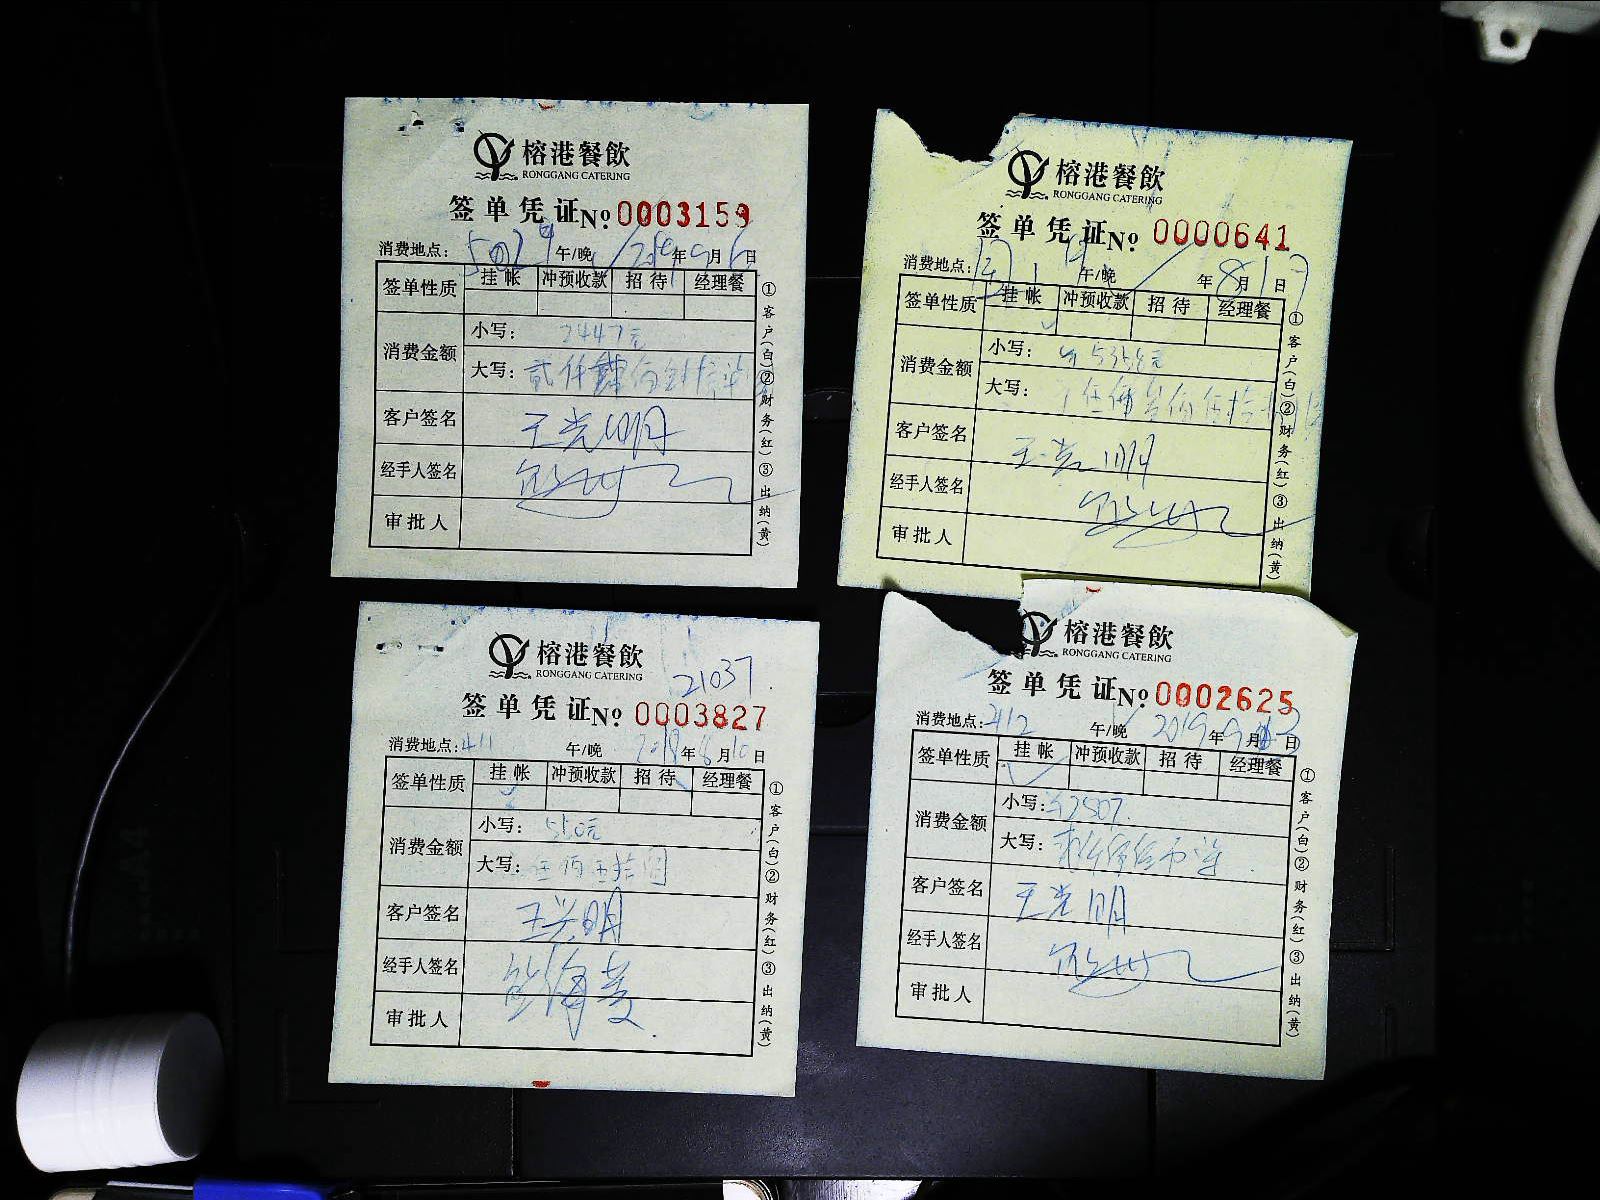 榕港餐飲
RONGGANG CATERING
签单凭证No 0003159
消费地点: 午/晚 2019年9月6日
签单性质 挂帐 冲预收款 招待 经理餐
消费金额
小写: 2447元
大写: 贰仟肆佰
客户签名
经手人签名
审批人
①客户(白)②财务(红)③出纳(黄)
榕港餐飲
RONGGANG CATERING
签单凭证No 0000641
消费地点: 午/晚 年8月17日
签单性质 挂帐 冲预收款 招待 经理餐
消费金额
小写: 5358元
大写:
客户签名
经手人签名
审批人
①客户(白)②财务(红)③出纳(黄)
榕港餐飲
RONGGANG CATERING
21037
签单凭证No 0003827
消费地点: 411 午/晚 年8月10日
签单性质 挂帐 冲预收款 招待 经理餐
消费金额
小写: 550元
大写: 伍佰伍拾圆
客户签名
经手人签名
审批人
①客户(白)②财务(红)③出纳(黄)
榕港餐飲
RONGGANG CATERING
签单凭证No 0002625
消费地点: 412 午/晚 2019年9月日
签单性质 挂帐 冲预收款 招待 经理餐
消费金额
小写: 2507
大写:
客户签名
经手人签名
审批人
①客户(白)②财务(红)③出纳(黄)